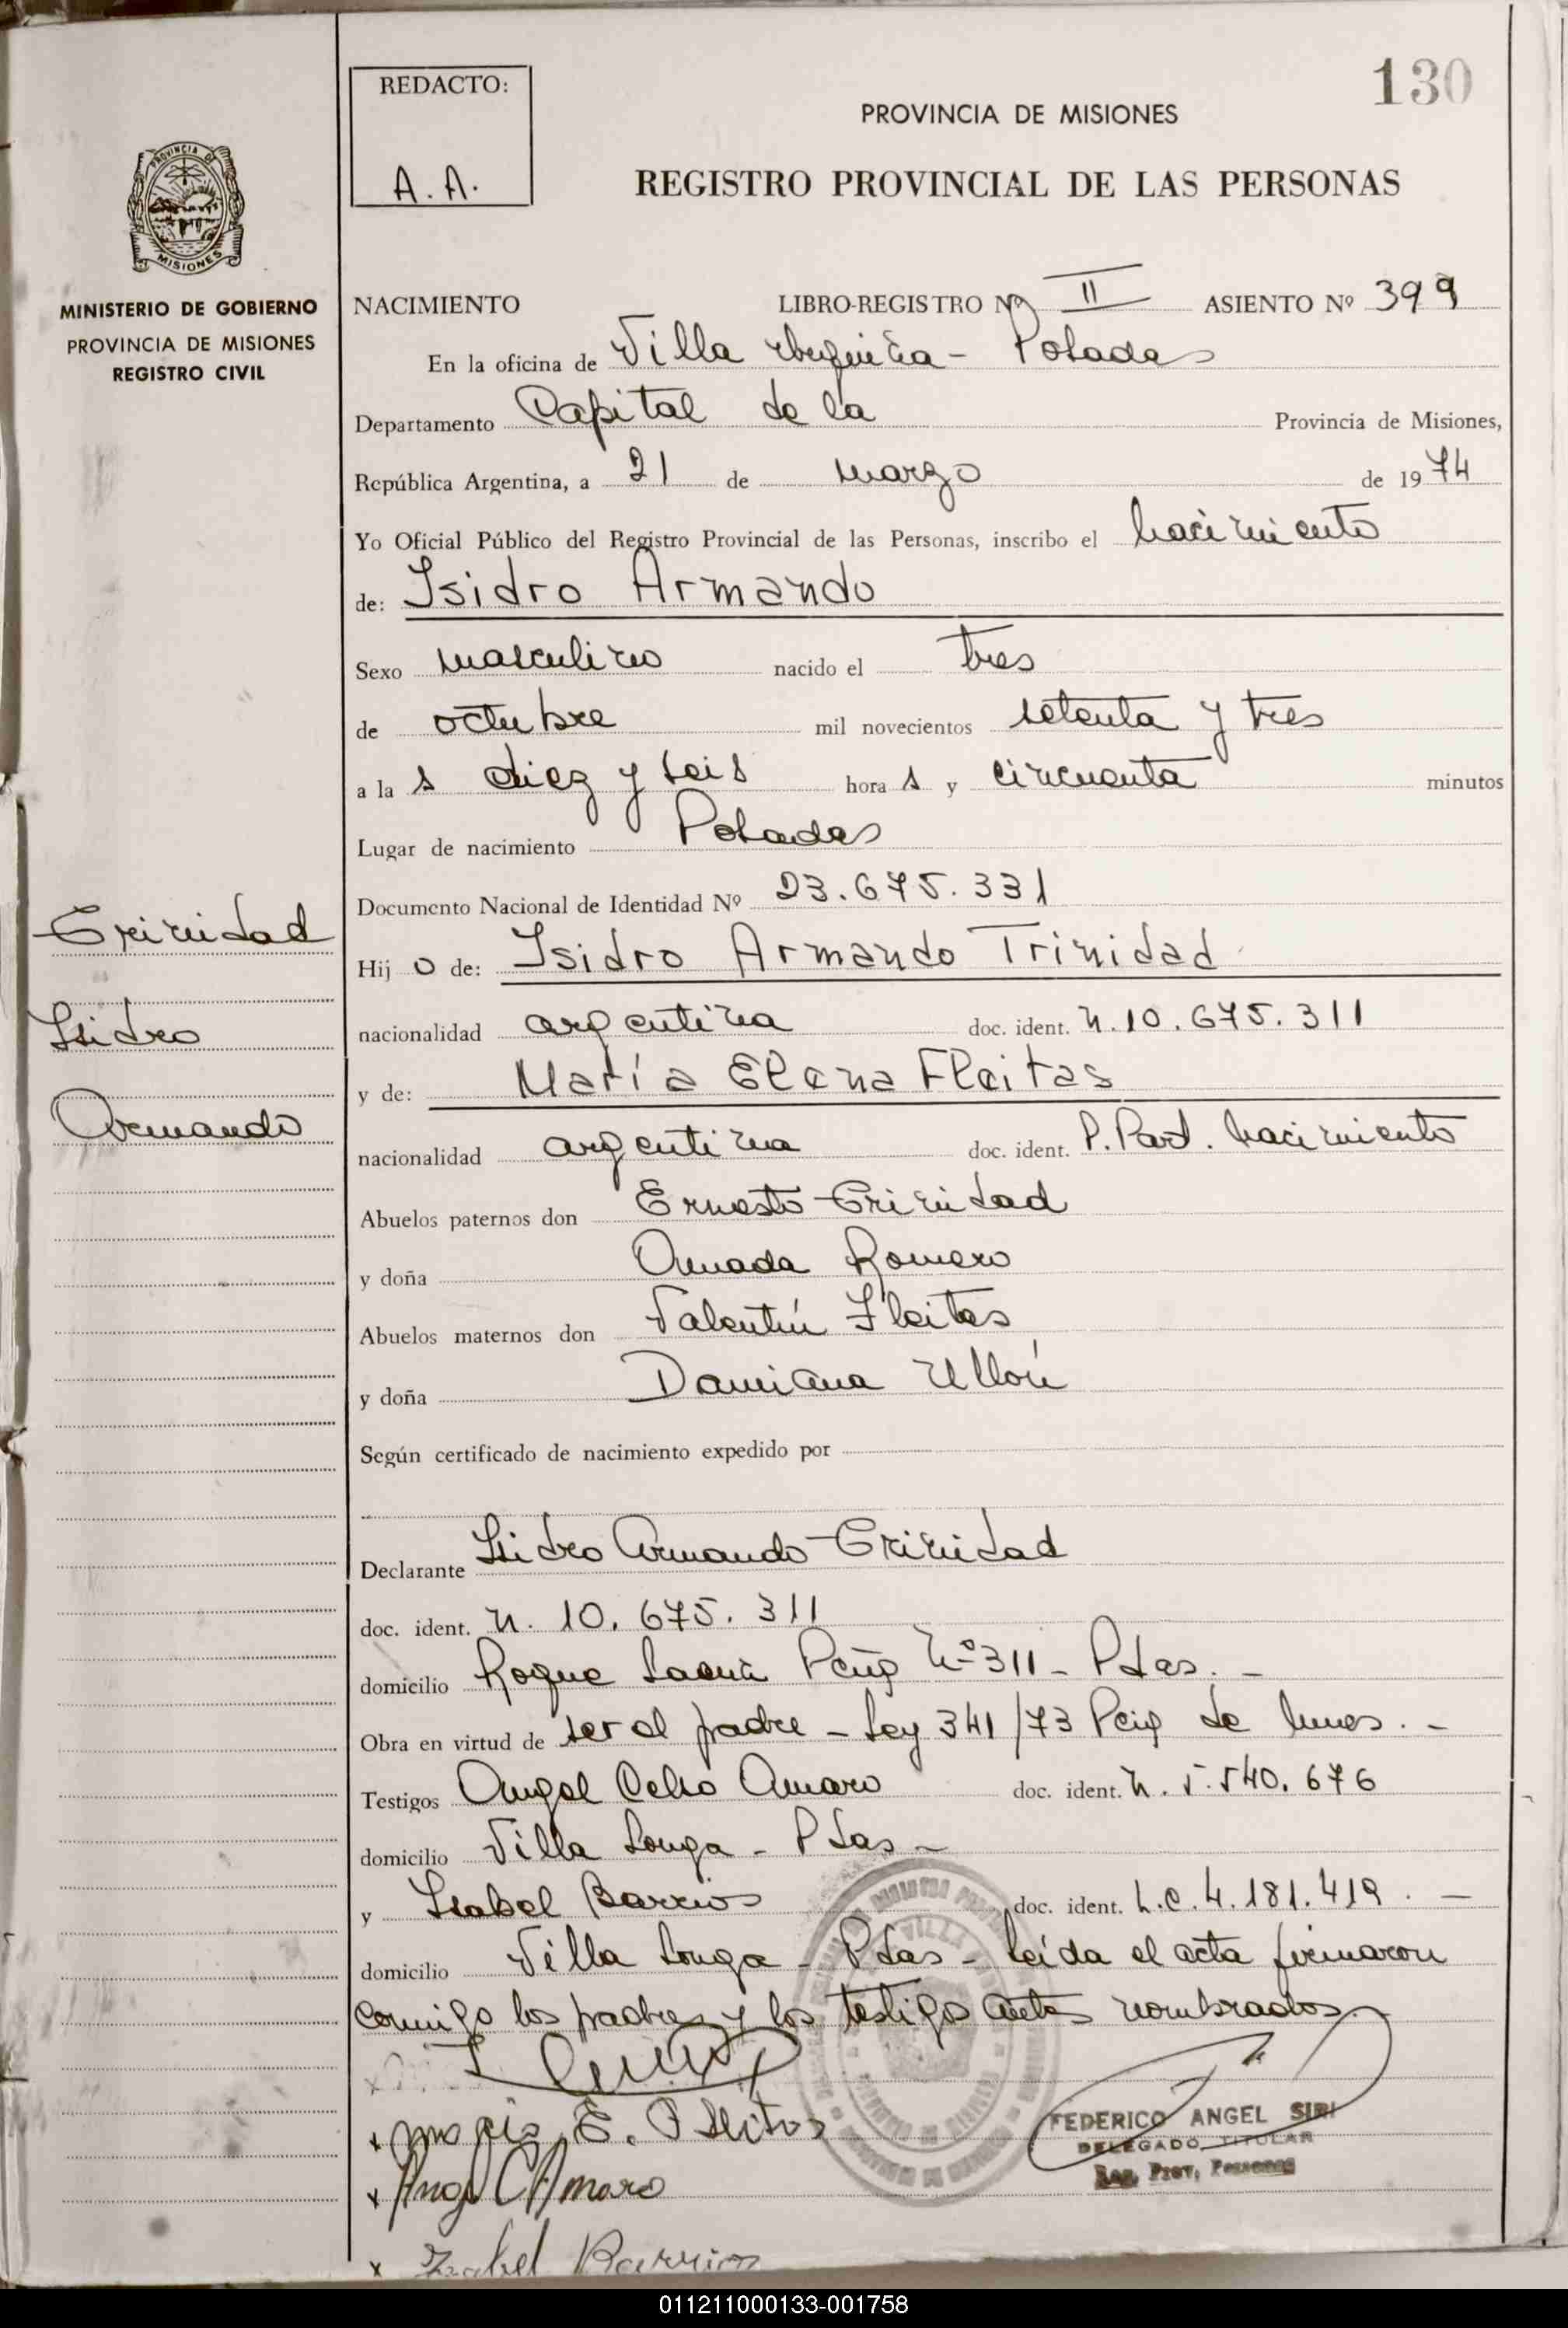 130
REDACTO:
A. A.
PROVINCIA DE MISIONES
REGISTRO PROVINCIAL DE LAS PERSONAS
PROVINCIA DE
MISIONES
MINISTERIO DE GOBIERNO
PROVINCIA DE MISIONES
REGISTRO CIVIL
NACIMIENTO LIBRO-REGISTRO Nº II ASIENTO Nº 399
En la oficina de Villa Urquiza - Posadas
Departamento Capital de la Provincia de Misiones,
República Argentina, a 21 de marzo de 1974
Yo Oficial Público del Registro Provincial de las Personas, inscribo el nacimiento
de: Isidro Armando
Sexo masculino nacido el tres
de octubre mil novecientos setenta y tres
a la s diez y seis hora s y cincuenta minutos
Lugar de nacimiento Posadas
Documento Nacional de Identidad Nº 23.675.331
Trinidad
Hij o de: Isidro Armando Trinidad
Isidro
nacionalidad argentina doc. ident. n. 10.675.311
Armando
y de: María Elena Fleitas
nacionalidad argentina doc. ident. P. Part. nacimiento
Abuelos paternos don Ernesto Trinidad
y doña Amada Romero
Abuelos maternos don Valentín Fleitas
y doña Damiana Ullón
Según certificado de nacimiento expedido por
Declarante Isidro Armando Trinidad
doc. ident. n. 10.675.311
domicilio Roque Saenz Peña Nº 311 - Pdas. -
Obra en virtud de ser el padre - Ley 341/73 de -
Testigos Angel Celso Amaro doc. ident. n. 5.540.676
domicilio Villa Longa - Pdas -
y Isabel Barrios doc. ident. L.C. 4.181.419. -
domicilio Villa Longa - Pdas - leída el acta firmaron
conmigo los padres y los testigos antes nombrados.
x Maria E. Fleitas
x Angel C Amaro
x Isabel Barrios
FEDERICO ANGEL SIRI
DELEGADO TITULAR
Reg. Prov. Personas
011211000133-001758